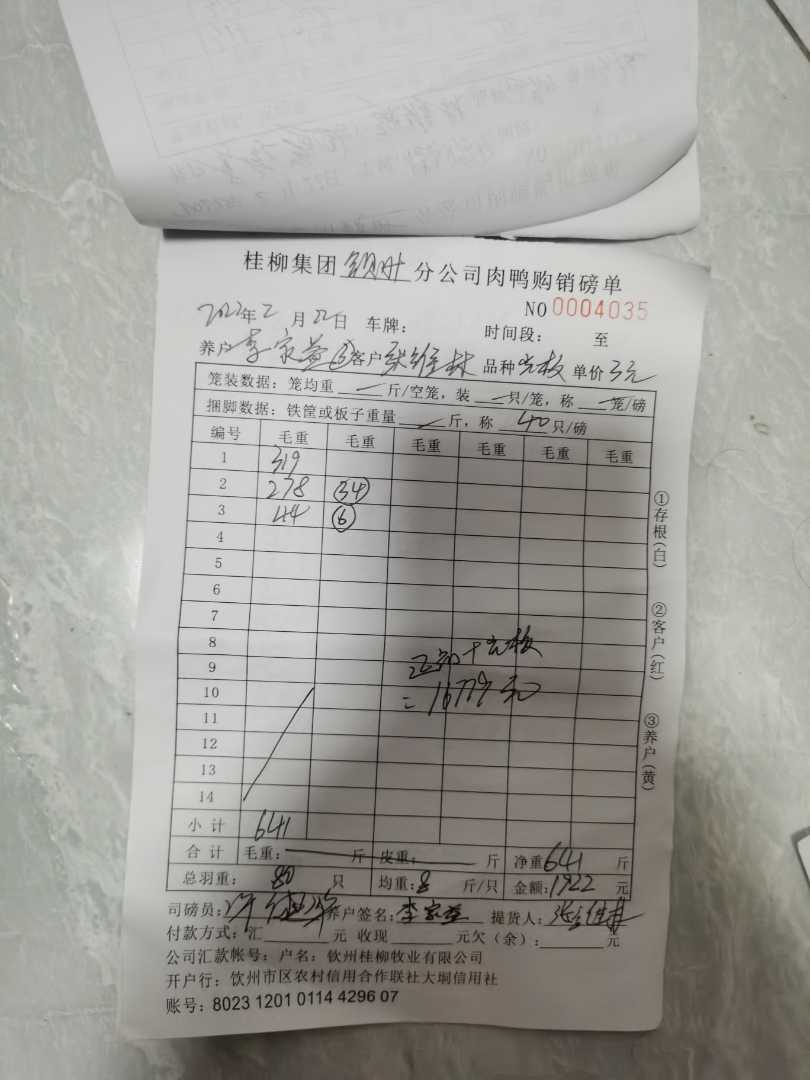 桂柳集团 钦州 分公司肉鸭购销磅单
NO 0004035
2022年2月22日 车牌: 时间段: 至
养户 李家益 ⑥ 客户 张维林 品种 光板 单价 3元
笼装数据: 笼均重 — 斤/空笼, 装 — 只/笼, 称 — 笼/磅
捆脚数据: 铁筐或板子重量 — 斤, 称 40 只/磅
编号 毛重 毛重 毛重 毛重 毛重 毛重
1 319
2 278 34
3 44 6
4
5
6
7
8
9
10
11
12
13
14
正品+光板
=16779元
小计 641
合计 毛重: 斤 皮重: 斤 净重 641 斤
总羽重: 80 只 均重: 8 斤/只 金额: 1922 元
司磅员: 养户签名: 李家益 提货人: 张维林
付款方式: 汇 元 收现 元欠(余): 元
公司汇款帐号: 户名: 钦州桂柳牧业有限公司
开户行: 钦州市区农村信用合作联社大垌信用社
账号: 8023 1201 0114 4296 07
①存根(白)
②客户(红)
③养户(黄)